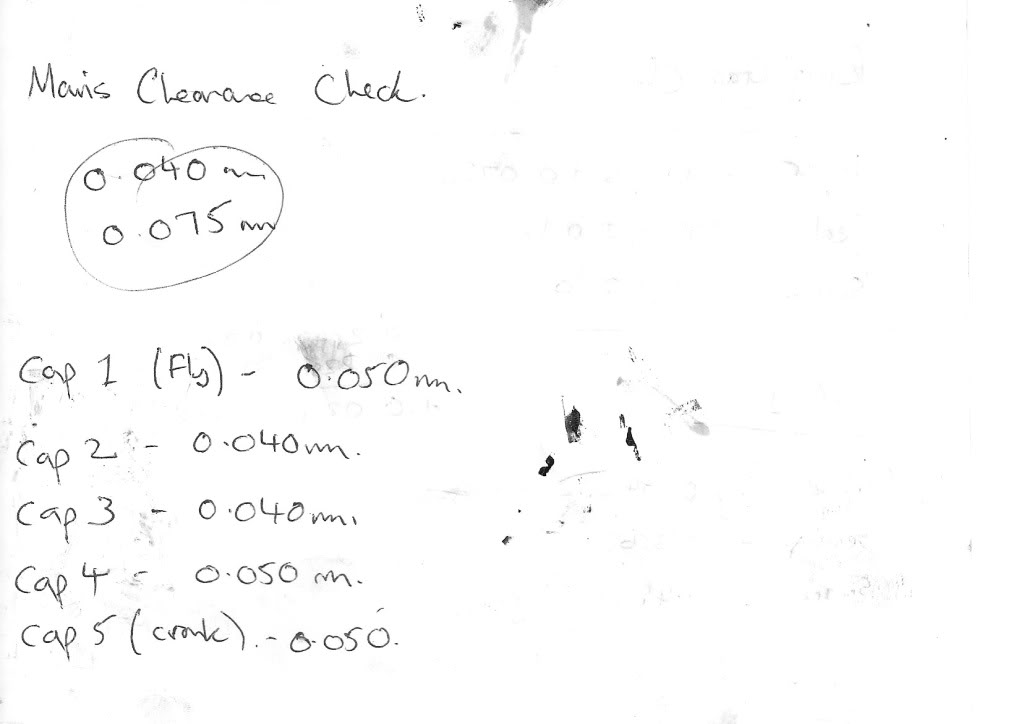 Mains Clearance Check.
0.040 mm
0.075 mm
Cap 1 (Fly) - 0.050mm.
Cap 2 - 0.040mm.
Cap 3 - 0.040mm.
Cap 4 - 0.050 mm.
Cap 5 (crank). - 0.050.